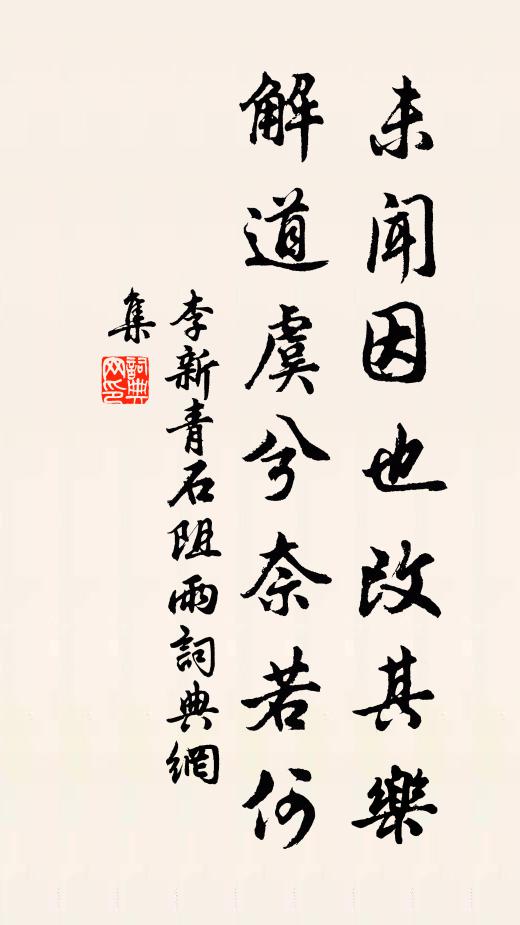 未聞因也改其樂
解道虞兮奈若何
李新青石阻雨詞典網
集
詞典
网印